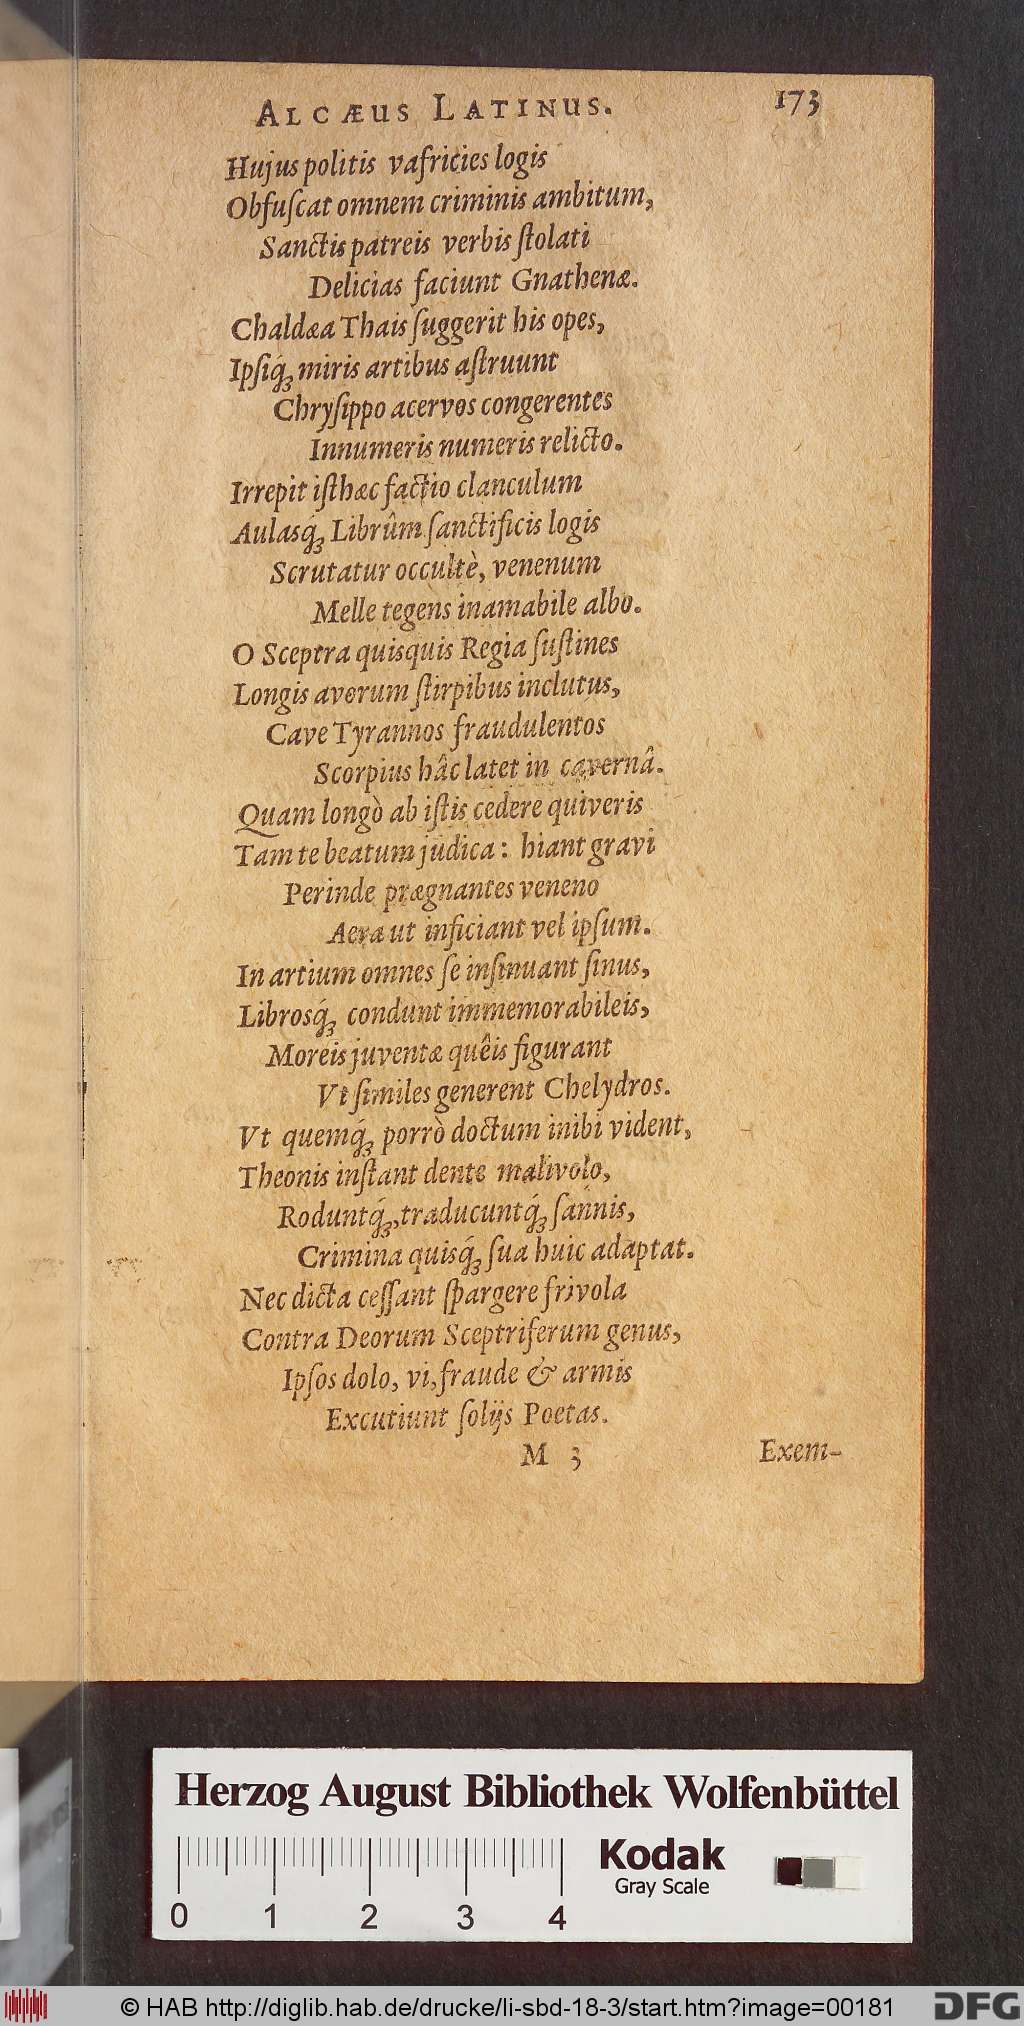 ALCÆUS LATINUS. 173
Hujus politis vafricies logis
Obfuſcat omnem criminis ambitum,
Sanctis patreis verbis ſtolati
Delicias faciunt Gnathenæ.
Chaldæa Thais ſuggerit his opes,
Ipſiq́ꝫ miris artibus aſtruunt
Chryſippo acervos congerentes
Innumeris numeris relicto.
Irrepit iſthæc factio clanculum
Aulasq́ꝫ Librûm ſanctificis logis
Scrutatur occultè, venenum
Melle tegens inamabile albo.
O Sceptra quisquis Regia ſuſtines
Longis avorum ſtirpibus inclutus,
Cave Tyrannos fraudulentos
Scorpius hâc latet in cavernâ.
Quam longò ab iſtis cedere quiveris
Tam te beatum judica: hiant gravi
Perinde prægnantes veneno
Aera ut inficiant vel ipſum.
In artium omnes ſe inſinuant ſinus,
Librosq́ꝫ condunt immemorabileis,
Moreis juventæ quêis figurant
Vt ſimiles generent Chelydros.
Vt quemq́ꝫ porrò doctum inibi vident,
Theonis inſtant dente malivolo,
Roduntq́ꝫ, traducuntq́ꝫ ſannis,
Crimina quisq́ꝫ ſua huic adaptat.
Nec dicta ceſſant ſpargere frivola
Contra Deorum Sceptriferum genus,
Ipſos dolo, vi, fraude & armis
Excutiunt ſolijs Poetas.
M 3 Exem-
Herzog August Bibliothek Wolfenbüttel
Kodak
Gray Scale
0 1 2 3 4
© HAB http://diglib.hab.de/drucke/li-sbd-18-3/start.htm?image=00181
DFG